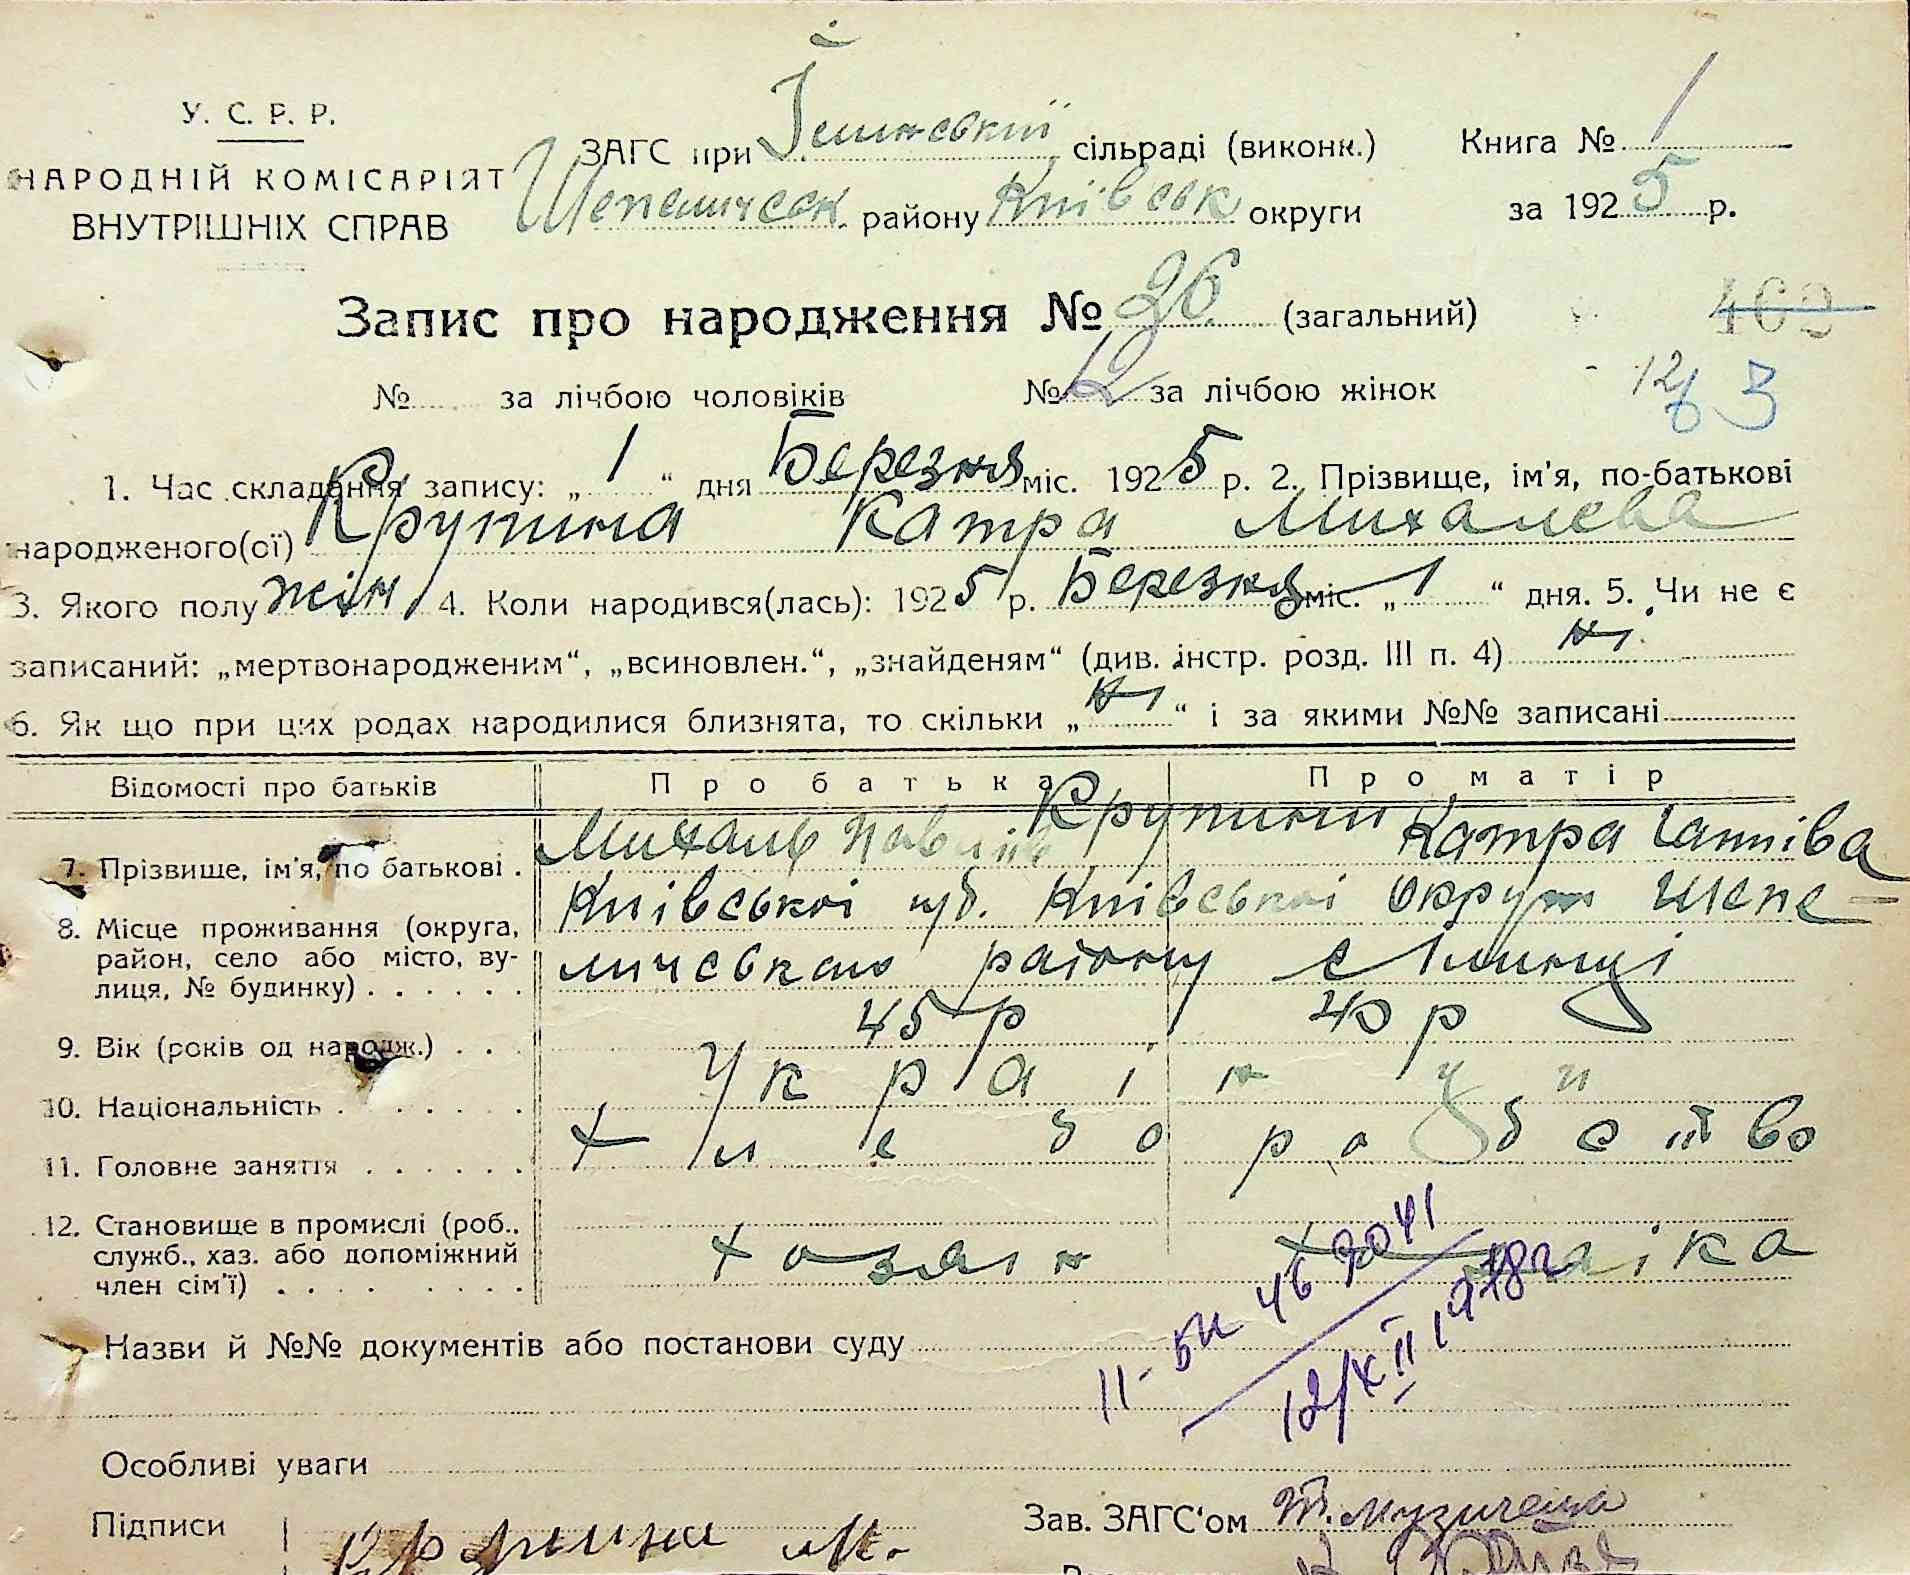 У. С. Р. Р.
НАРОДНІЙ КОМІСАРІЯТ
ВНУТРІШНІХ СПРАВ
ЗАГС при сільраді (виконк.) Книга № 1
Шепелическ району Київськ округи за 1925 р.
Запис про народження № 26 (загальний)
462
№ за лічбою чоловіків № 12 за лічбою жінок
12 63
1. Час складання запису: „ 1 “ дня Березня міс. 1925 р. 2. Прізвище, ім'я, по-батькові
народженого(ої) Крупина Катра Михалева
3. Якого полу жін 4. Коли народився(лась): 1925 р. Березня міс. „ 1 “ дня. 5. Чи не є
записаний: „мертвонародженим“, „всиновлен.“, „знайденям“ (див. інстр. розд. III п. 4) ні
6. Як що при цих родах народилися близнята, то скільки „ ні “ і за якими №№ записані
Відомості про батьків Про батька Про матір
7. Прізвище, ім'я, по батькові . Михаль Павлів Крупини Катра
8. Місце проживання (округа, район, село або місто, вулиця, № будинку) . . . . . . Київської губ. Київської округи Шепе-
личського району с
9. Вік (років од народж.) . . . 45 р 40 р
10. Національність . . . . . . . Українці
11. Головне заняття . . . . . . хлеборобство
12. Становище в промислі (роб., служб., хаз. або допоміжний член сім'ї) . . . . . . . . . хозаін хозаіка
Назви й №№ документів або постанови суду
II-БК 462041
12/XII 1978г
Особливі уваги
Підписи Крупини М. Зав. ЗАГС'ом